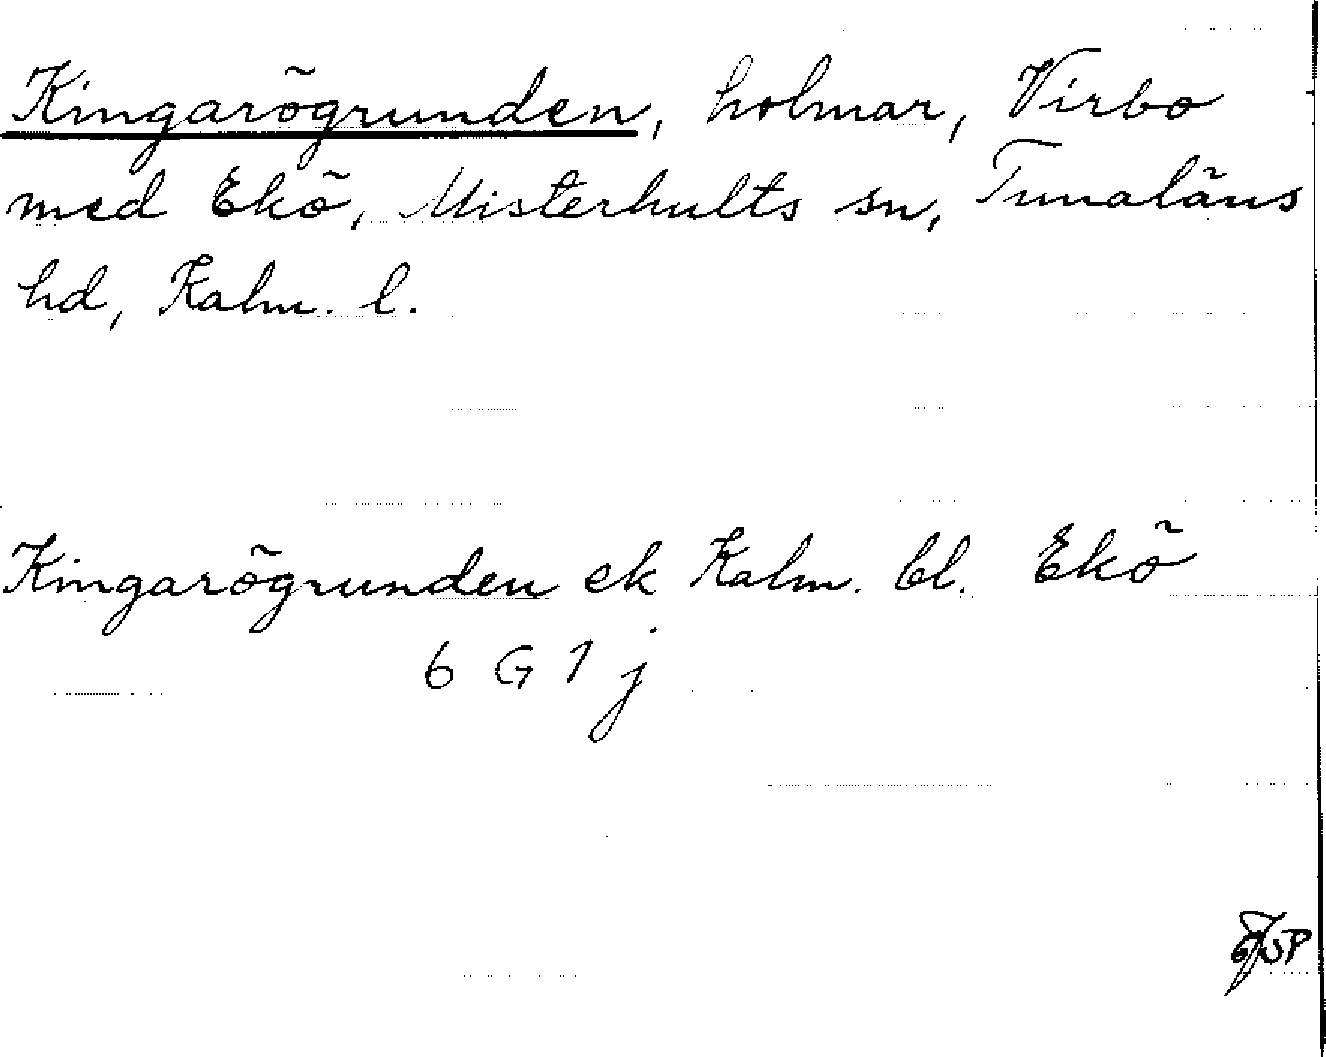 Kingarögrunden, holmar, Virbo
med Ekö, Misterhults sn, Tunaläns
hd, Kalm. l.
Kingarögrunden ek Kalm. bl. Ekö
6 G 1 j